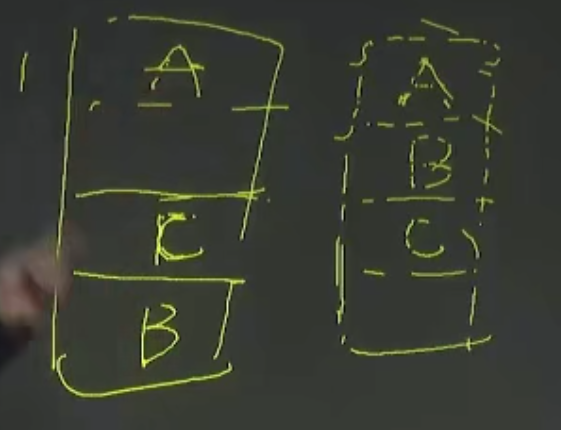 A
C
B
A
B
C